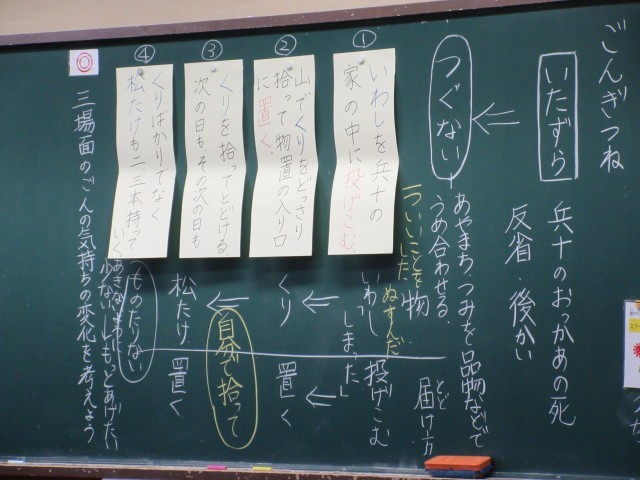 ごんぎつね
いたずら
兵十のおっかあの死
反省・後かい
つぐない
あやまち、つみを品物などで
うめ合わせる。
物
とどけ方
届け方
ついいことを
した
①
いわしを兵十の
家の中に投げこむ。
いわし
ぬすんだ
しまった
投げこむ
②
山でくりをどっさり
拾って物置の入り口
に置く。
くり
置く
③
くりを拾ってとどける
次の日もその次の日も
自分で拾って
④
くりばかりでなく
松たけも二、三本持って
いく
松たけ
置く
ものたりない
もっとあげたい
◎
三場面のごんの気持ちの変化を考えよう